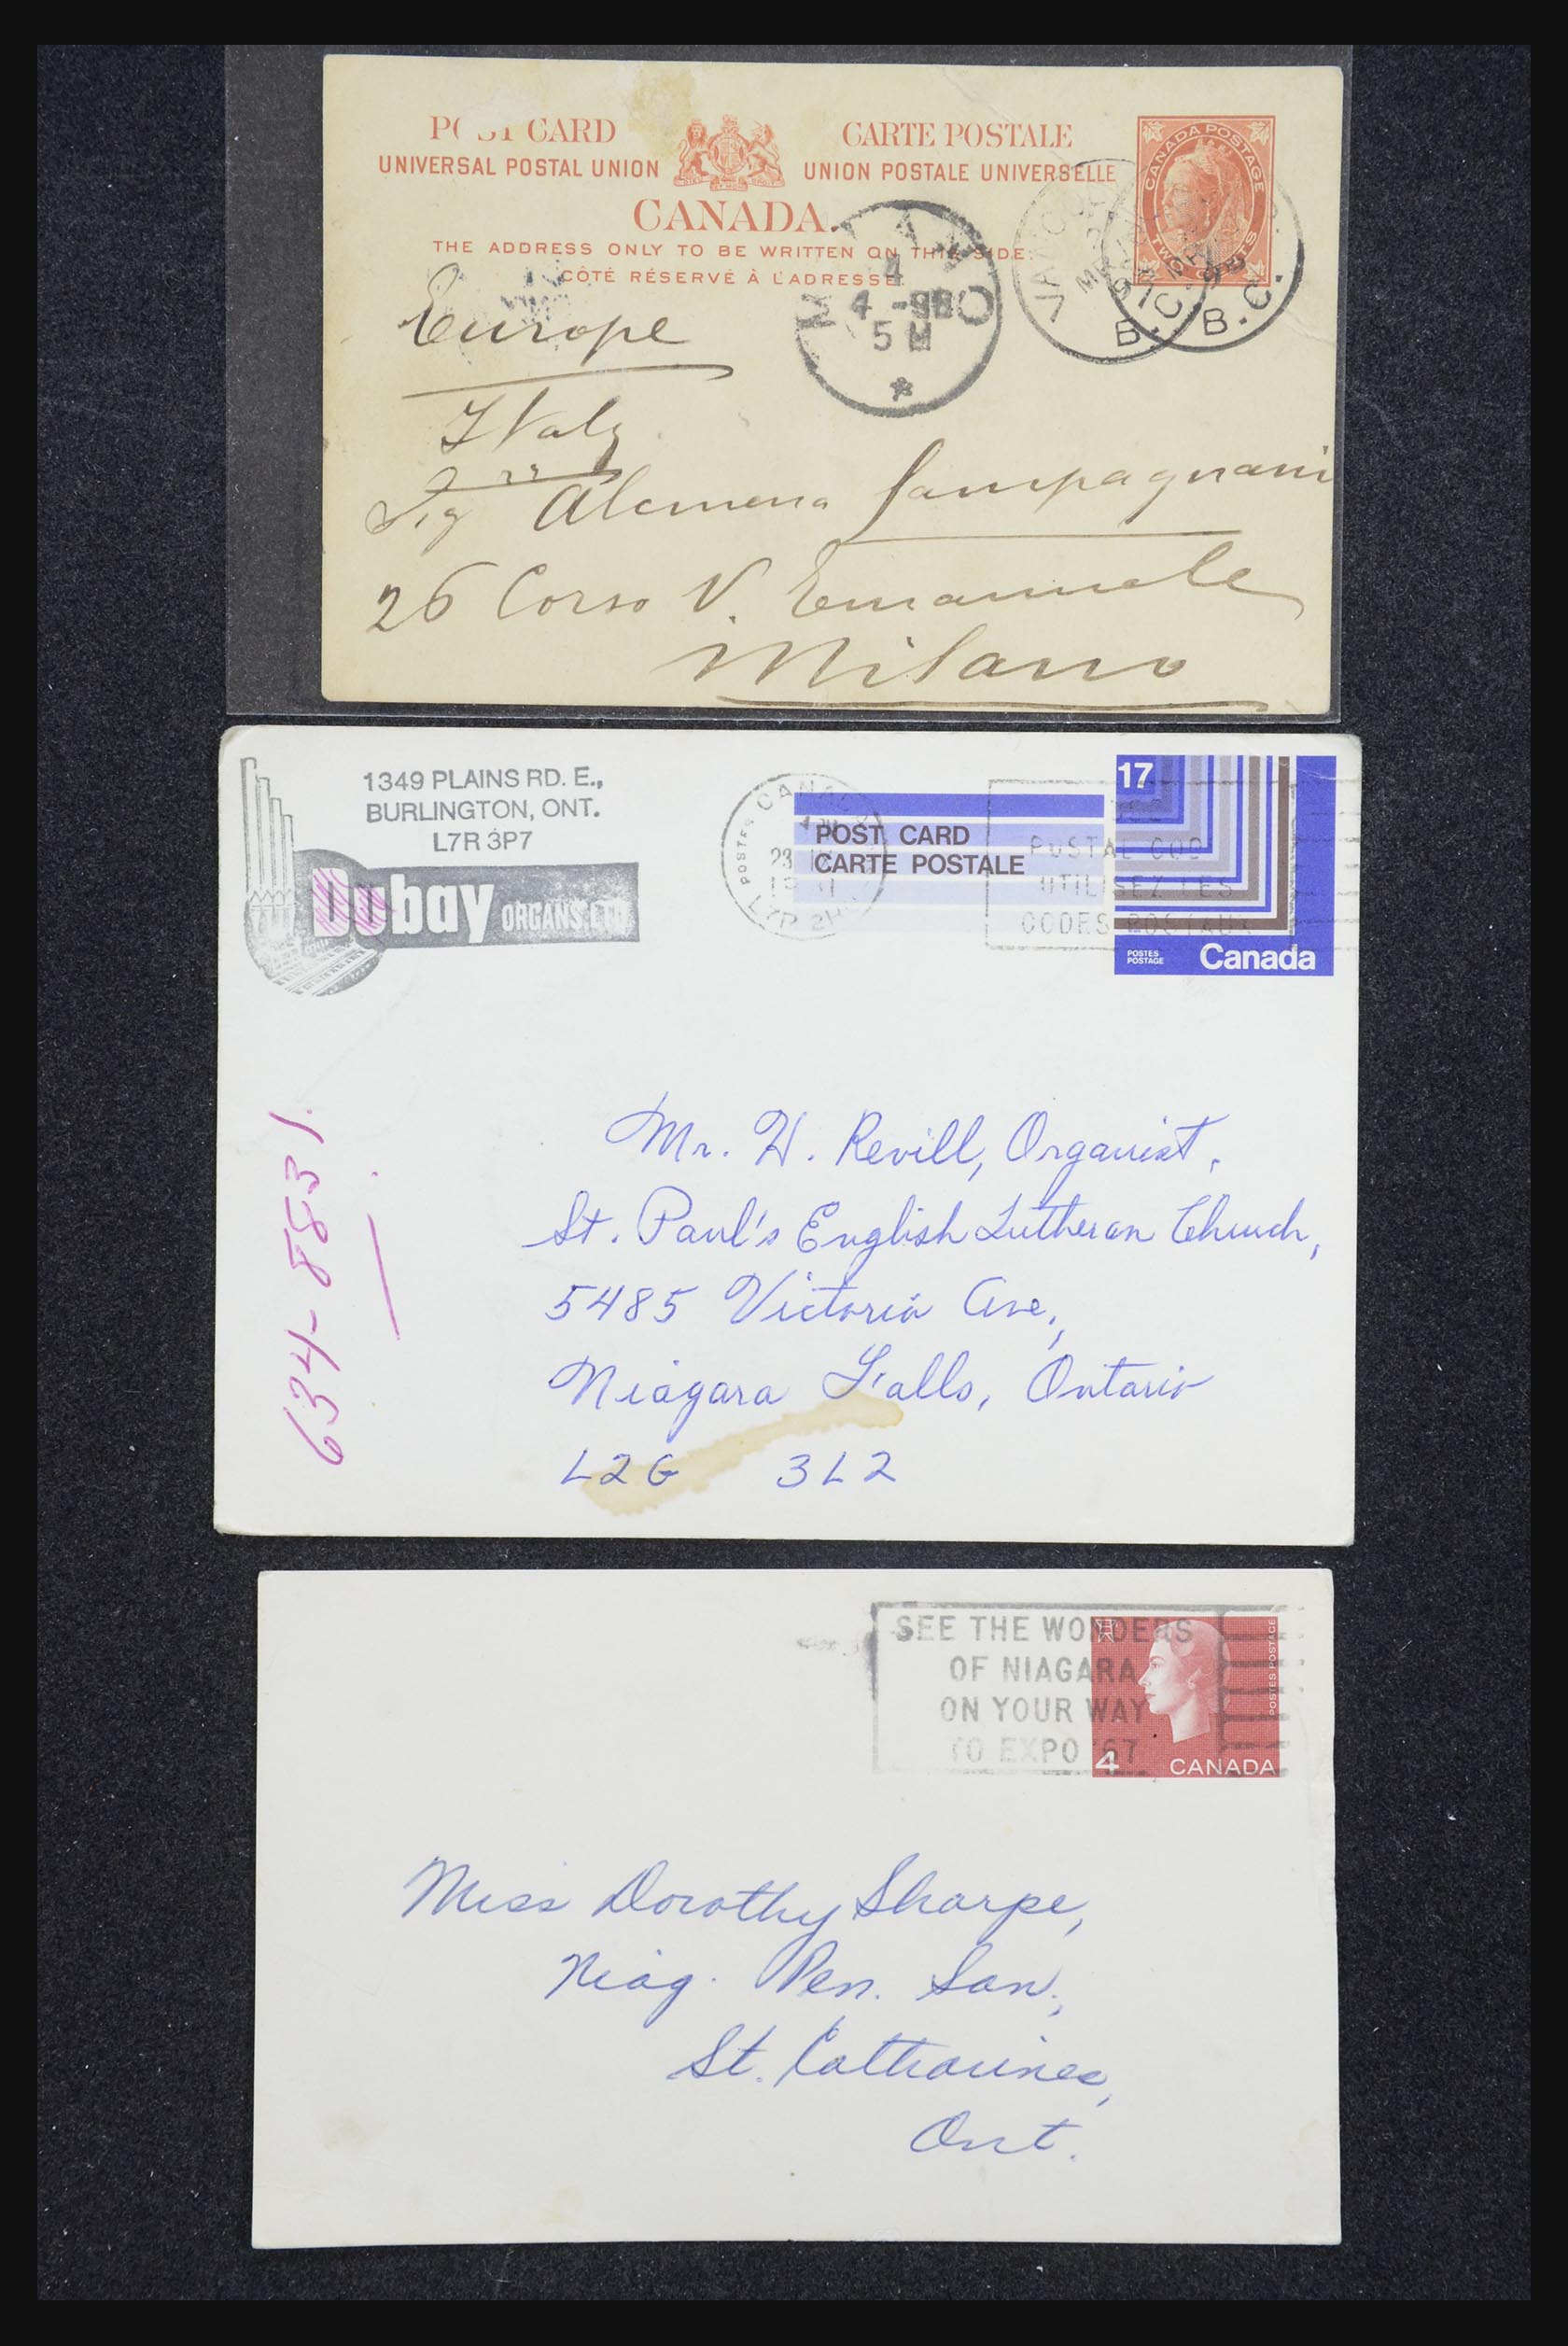 POST CARD
CARTE POSTALE
UNIVERSAL POSTAL UNION
UNION POSTALE UNIVERSELLE
CANADA.
THE ADDRESS ONLY TO BE WRITTEN ON THIS SIDE.
CÔTÉ RÉSERVÉ À L'ADRESSE
CANADA POSTAGE
TWO CENTS
4
4 -98
5 M
B.C.
B.C.
Europe
Italy
Sig Alemena Campagnani
26 Corso V. Emanuele
Milano
1349 PLAINS RD. E.,
BURLINGTON, ONT.
L7R 3P7
Dubay ORGANS LTD
CANADA
POSTES
23
POST CARD
CARTE POSTALE
POSTAL COD
UTILISEZ LES
CODES POSTAUX
17
POSTES
POSTAGE
Canada
634-8831
Mr. H. Revill, Organist,
St. Paul's English Lutheran Church,
5485 Victoria Ave.,
Niagara Falls, Ontario
L2G 3L2
SEE THE WONDERS
OF NIAGARA
ON YOUR WAY
TO EXPO '67
POSTES POSTAGE
4 CANADA
Miss Dorothy Sharpe,
Niag. Pen. San.,
St. Catharines,
Ont.